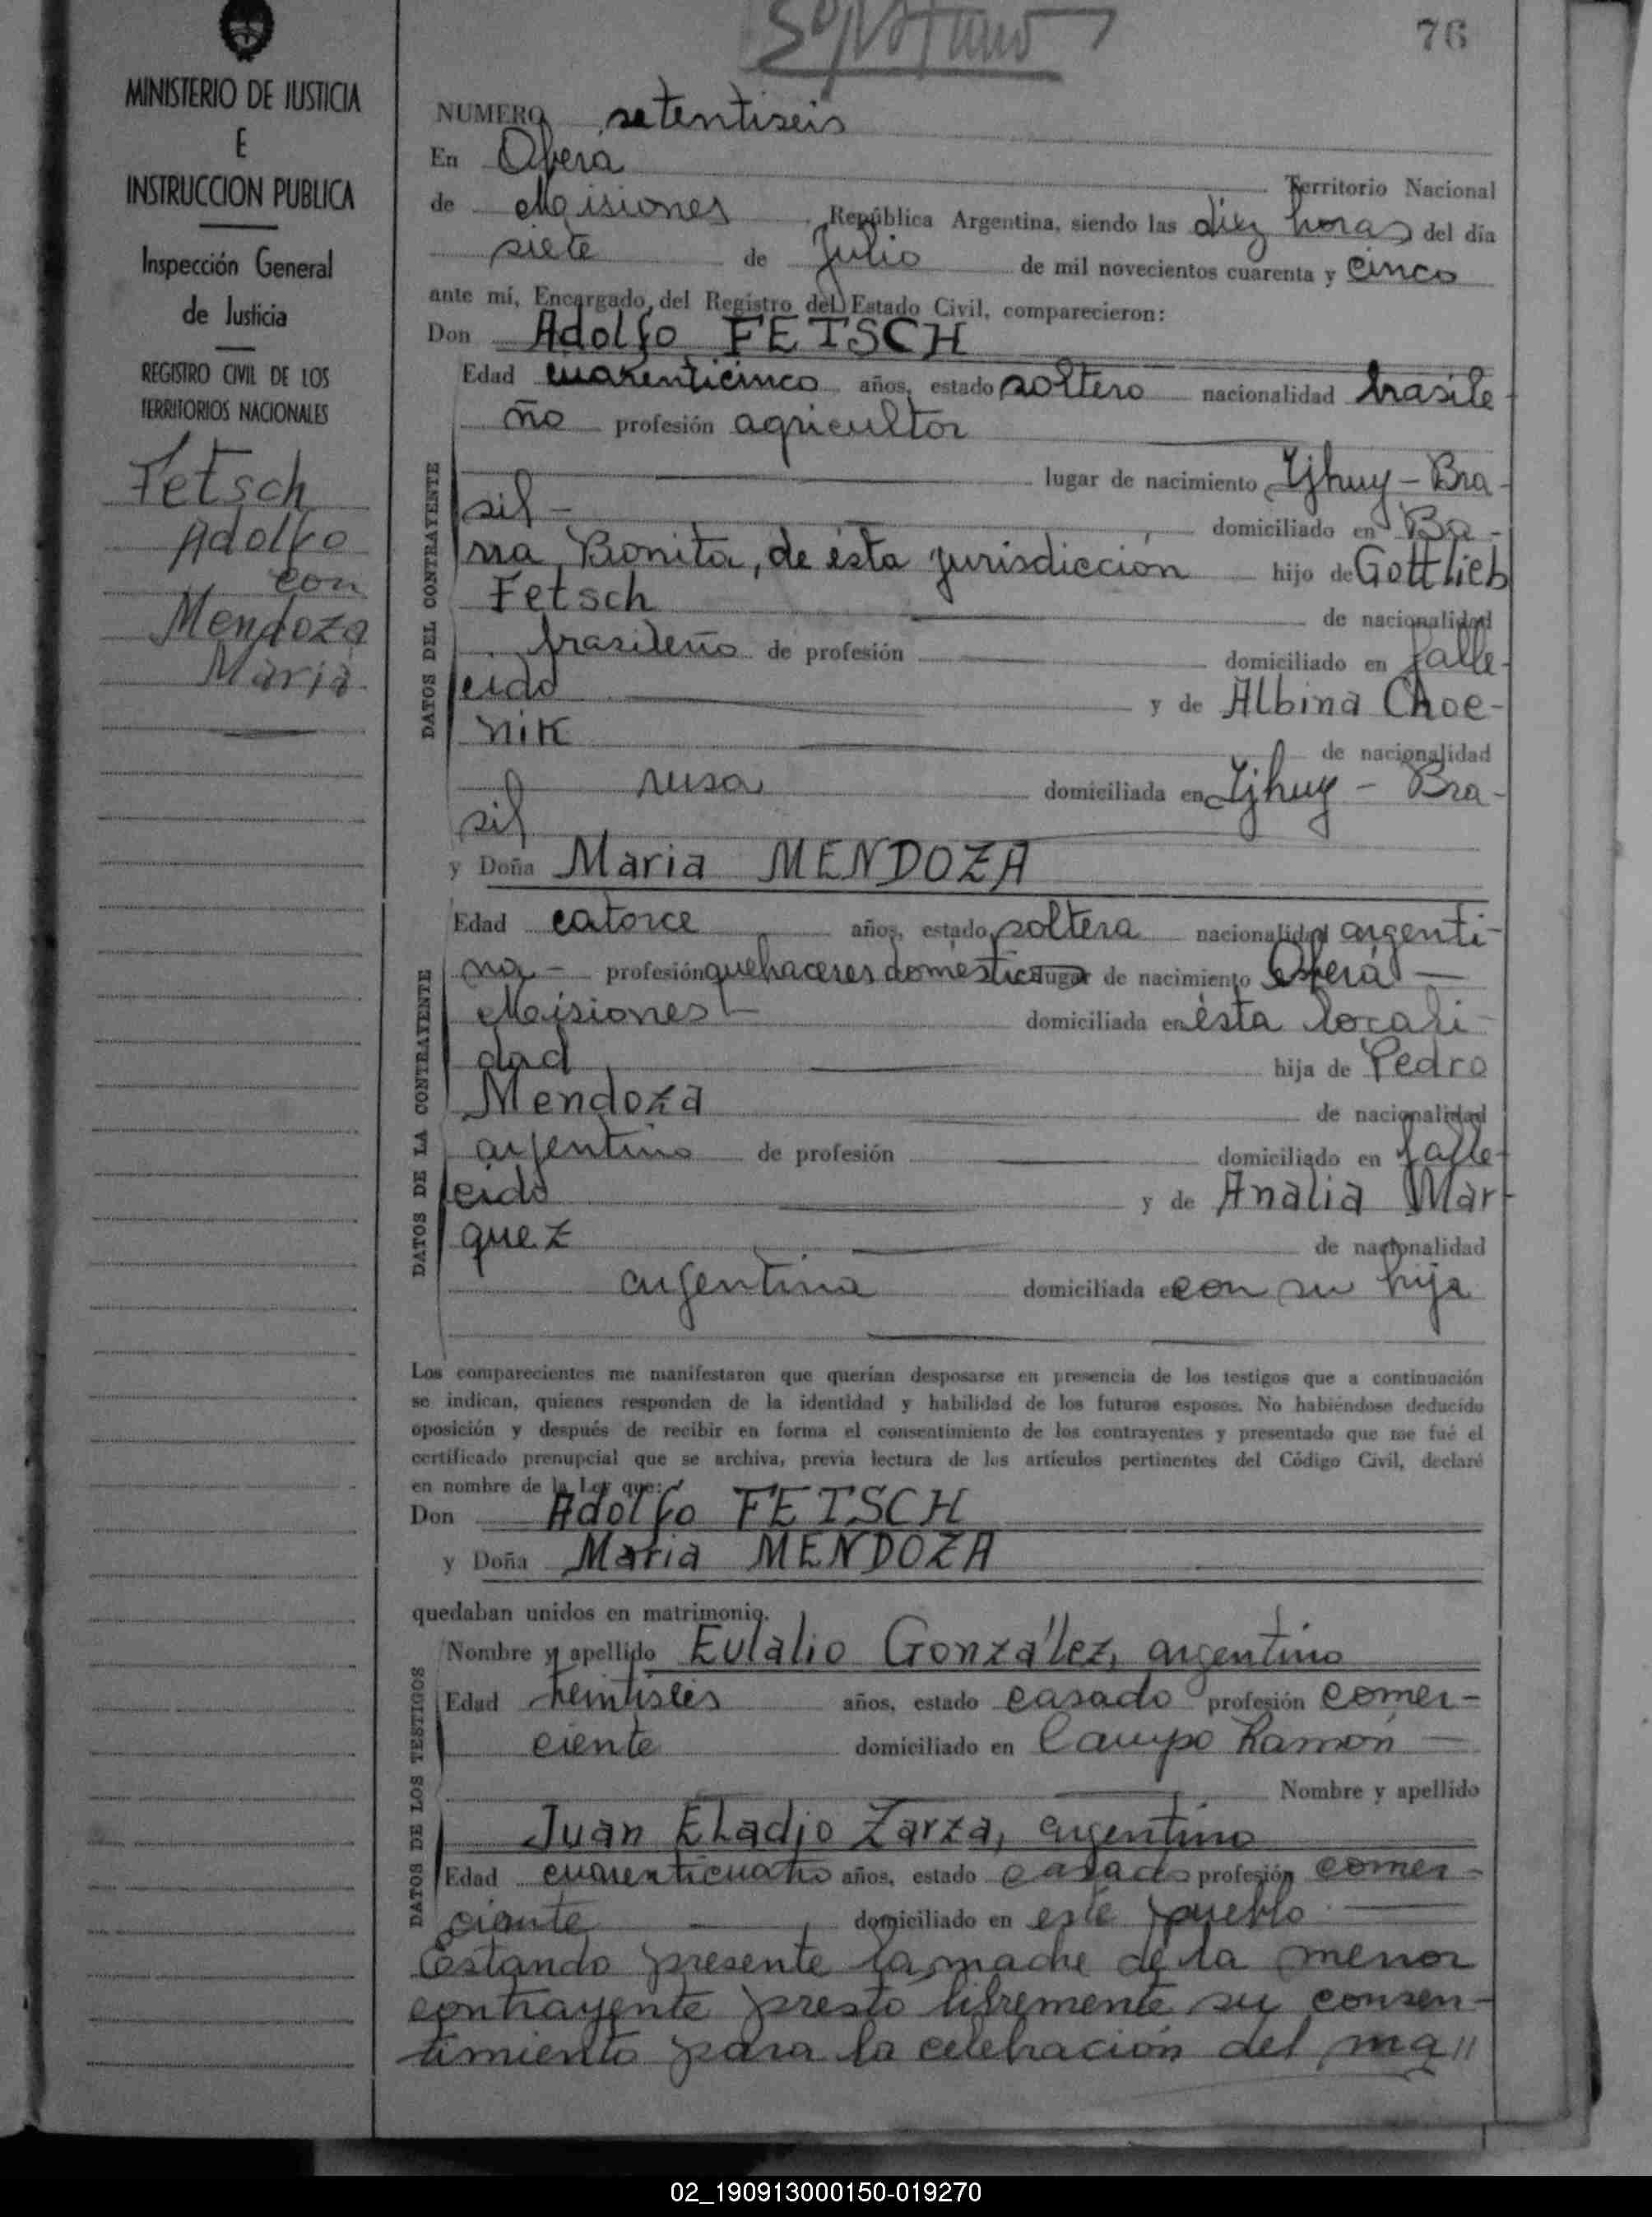 76
MINISTERIO DE JUSTICIA
E
INSTRUCCION PUBLICA
Inspección General
de Justicia
REGISTRO CIVIL DE LOS
TERRITORIOS NACIONALES
Fetsch
Adolfo
con
Mendoza
Maria
NUMERO setentiseis
En Oberá Territorio Nacional
de Misiones República Argentina, siendo las diez horas del día
siete de Julio de mil novecientos cuarenta y cinco
ante mí, Encargado del Registro del Estado Civil, comparecieron:
Don Adolfo FETSCH
DATOS DEL CONTRAYENTE
Edad cuarenticinco años, estado soltero nacionalidad brasile-
ño profesión agricultor
lugar de nacimiento Ijhuy - Bra-
sil - domiciliado en Ba-
rra Bonita, de ésta jurisdicción hijo de Gottlieb
Fetsch de nacionalidad
brasileño de profesión domiciliado en falle-
cido y de Albina Choe-
nik de nacionalidad
rusa domiciliada en Ijhuy - Bra-
sil
y Doña Maria MENDOZA
DATOS DE LA CONTRAYENTE
Edad catorce años, estado soltera nacionalidad argenti-
na - profesión quehaceres domesticos lugar de nacimiento Oberá -
Misiones - domiciliada en ésta locali-
dad hija de Pedro
Mendoza de nacionalidad
argentino de profesión domiciliado en falle-
cido y de Analia Mar-
quez de nacionalidad
argentina domiciliada en con su hija
Los comparecientes me manifestaron que querían desposarse en presencia de los testigos que a continuación
se indican, quienes responden de la identidad y habilidad de los futuros esposos. No habiéndose deducido
oposición y después de recibir en forma el consentimiento de los contrayentes y presentado que me fué el
certificado prenupcial que se archiva, previa lectura de los artículos pertinentes del Código Civil, declaré
en nombre de la Ley que:
Don Adolfo FETSCH
y Doña Maria MENDOZA
quedaban unidos en matrimonio.
DATOS DE LOS TESTIGOS
Nombre y apellido Eulalio González, argentino
Edad años, estado casado profesión comer-
ciente domiciliado en Campo Ramón
Nombre y apellido
Juan Eladio Zarza, argentino
Edad cuarenticuatro años, estado casado profesión comer-
ciante domiciliado en este pueblo
Estando presente la madre de la menor
contrayente prestó libremente su consen-
timiento para la celebración del ma//
02_190913000150-019270